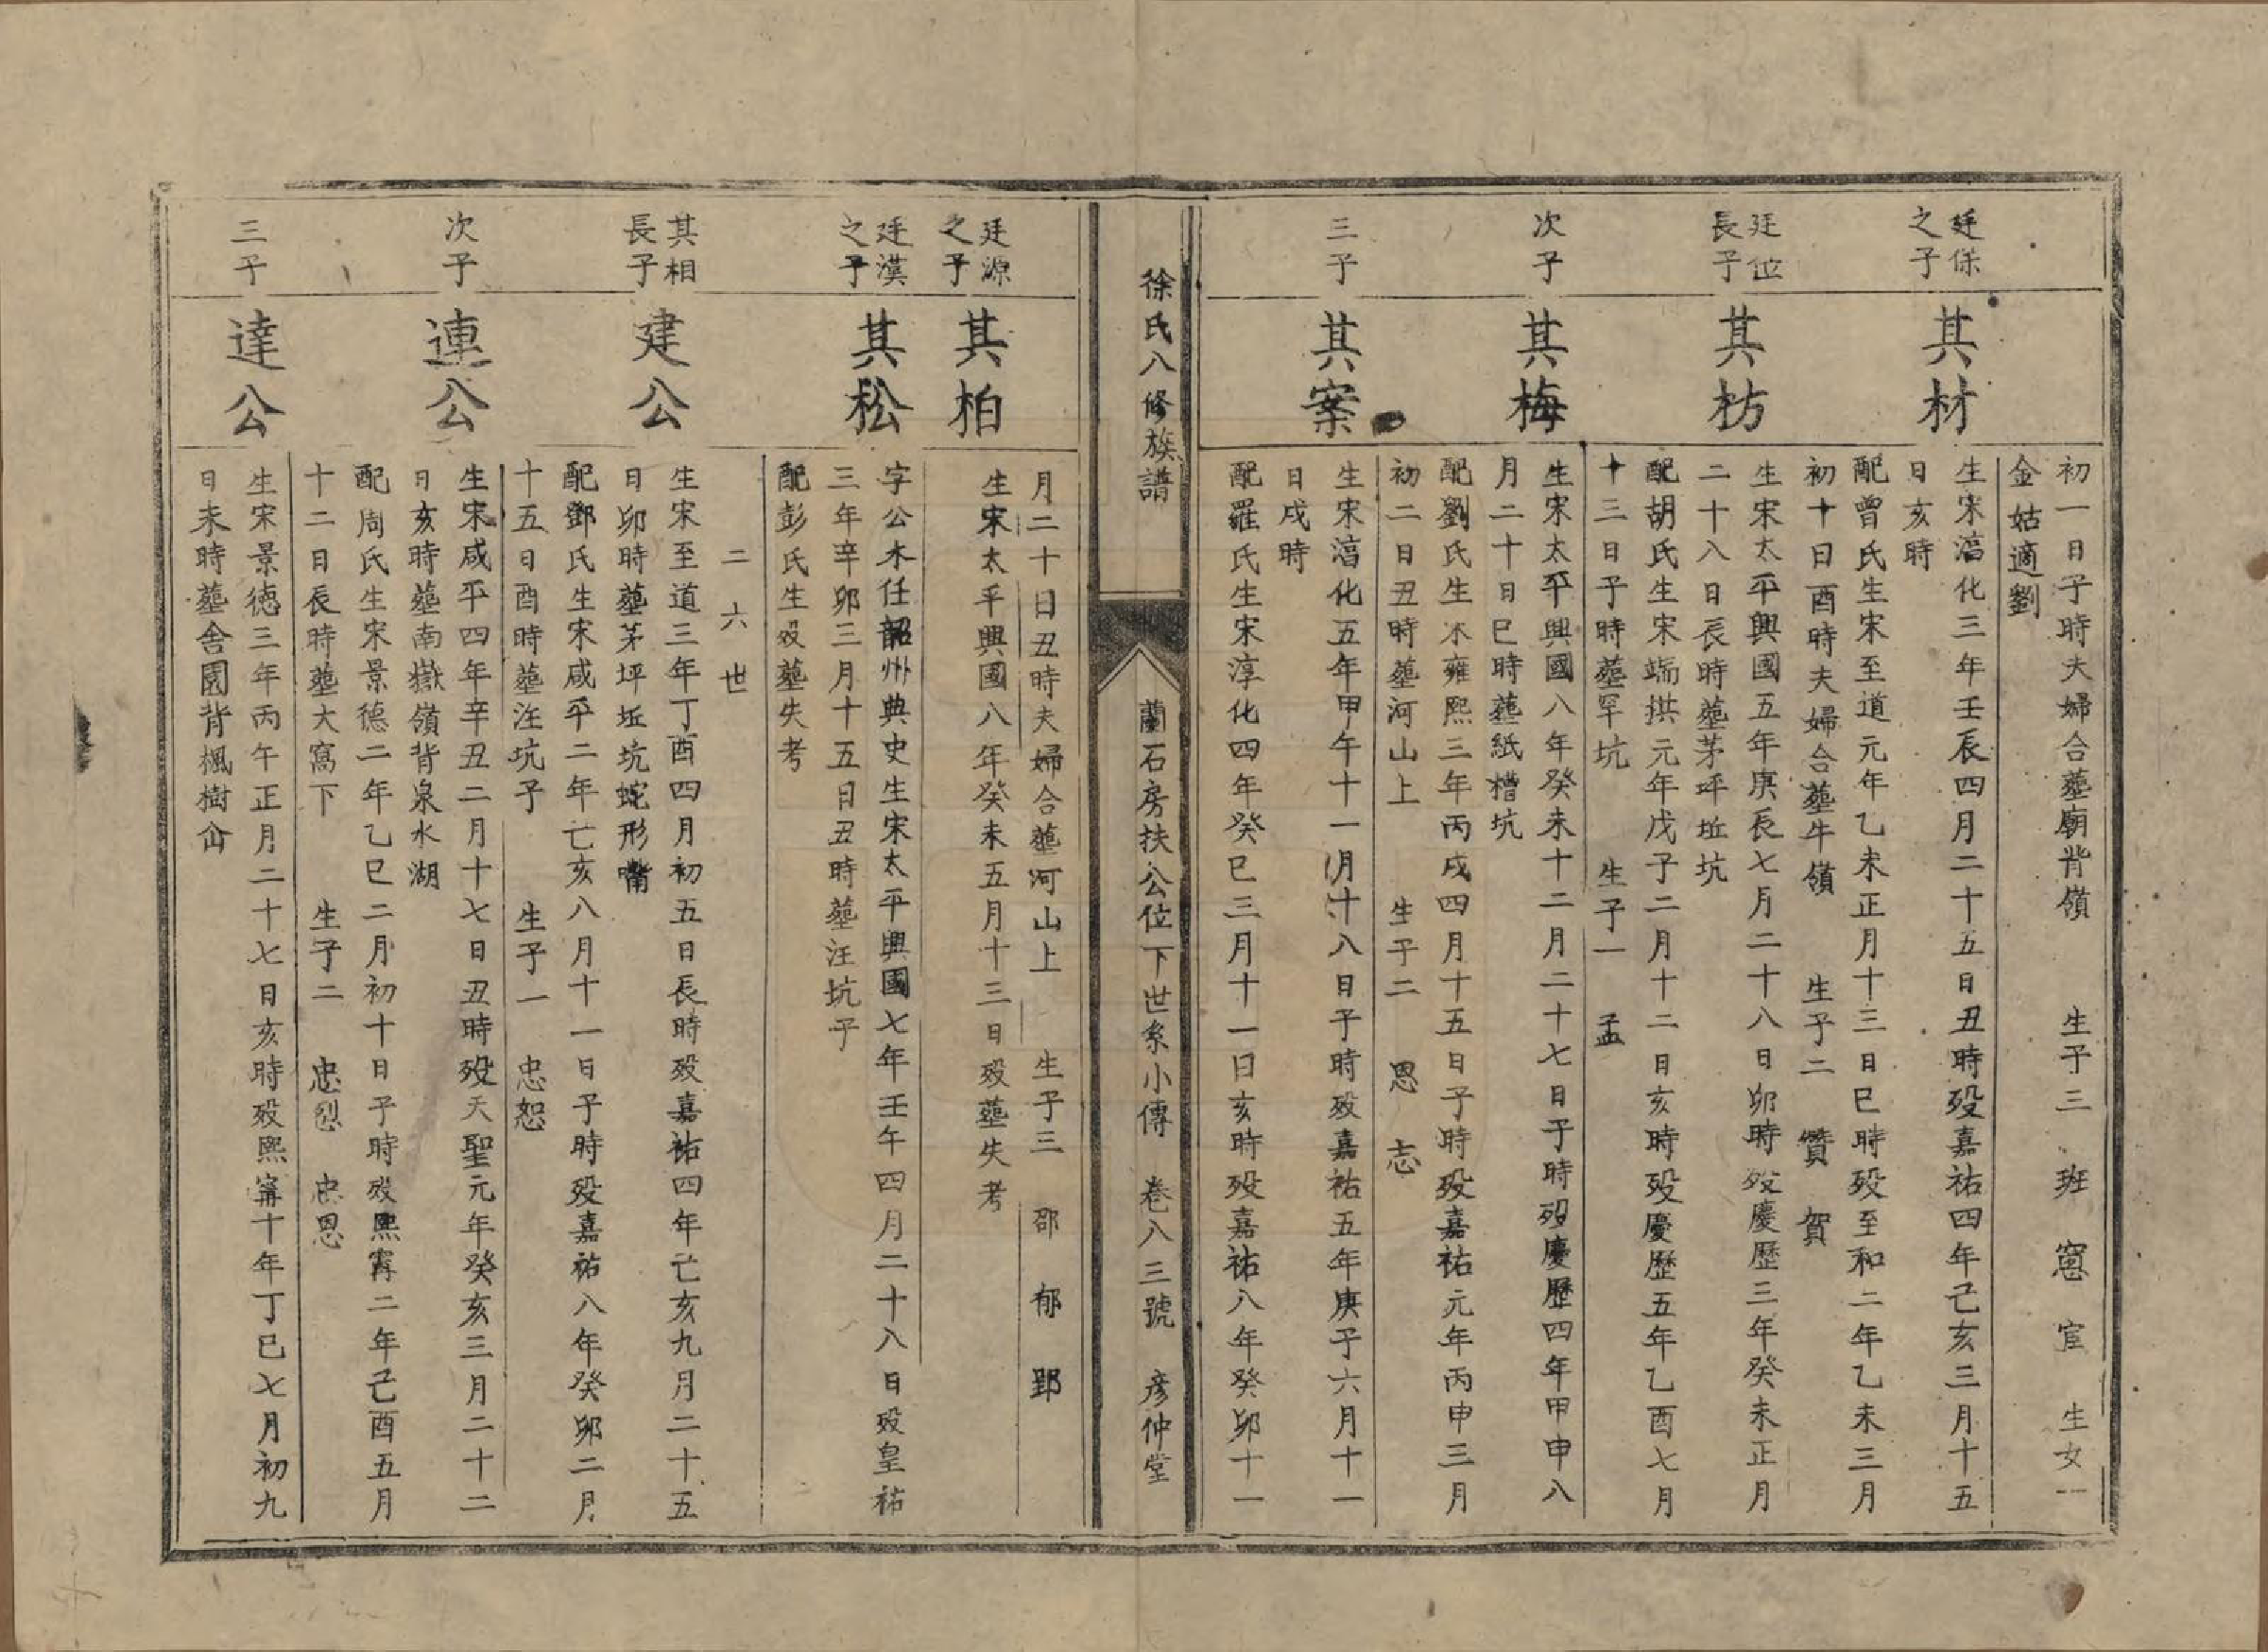 初一日子時夫婦合塟廟背嶺　生子三　班　窻　宦　生女一
金姑適劉
廷保之子
其材
生宋淓化三年壬辰四月二十五日丑時殁嘉祐四年己亥三月十五
日亥時
配曾氏生宋至道元年乙未正月十三日巳時殁至和二年乙未三月
初十日酉時夫婦合塟牛嶺　生子二　贊　賀
廷位長子
其枋
生宋太平興國五年庚辰七月二十八日卯時殁慶歷三年癸未正月
二十八日辰時塟茅坪坵坑
配胡氏生宋端拱元年戊子二月十二日亥時殁慶歷五年乙酉七月
十三日子時塟罕坑　生子一　孟
次子
其梅
生宋太平興國八年癸未十二月二十七日子時殁慶歷四年甲申八
月二十日巳時塟紙槽坑
配劉氏生宋雍熙三年丙戌四月十五日子時殁嘉祐元年丙申三月
初二日丑時塟河山上　生子二　恩　志
三子
其案
生宋淓化五年甲午十一月十八日子時殁嘉祐五年庚子六月十一
日戌時
配羅氏生宋淳化四年癸巳三月十一日亥時殁嘉祐八年癸卯十一
徐氏八修族譜
蘭石房扶公位下世系小傳　卷八三號　彥仲堂
月二十日丑時夫婦合塟河山上　生子三　邵　郁　郢
廷源之子
其柏
生宋太平興國八年癸未五月十三日殁塟失考
廷漢之子
其松
字公木任韶州典史生宋太平興國七年壬午四月二十八日殁皇祐
三年辛卯三月十五日丑時塟汪坑子
配彭氏生殁塟失考
二六世
其相長子
建公
生宋至道三年丁酉四月初五日辰時殁嘉祐四年亡亥九月二十五
日卯時塟茅坪坵坑蛇形嘴
配鄧氏生宋咸平二年亡亥八月十一日子時殁嘉祐八年癸卯二月
十五日酉時塟汪坑子　生子一　忠恕
次子
連公
生宋咸平四年辛丑二月十七日丑時殁天聖元年癸亥三月二十二
日亥時塟南嶽嶺背泉水湖
配周氏生宋景德二年乙巳二月初十日子時殁熙甯二年己酉五月
十二日辰時塟大窩下　生子二　忠烈　忠恩
三子
達公
生宋景德三年丙午正月二十七日亥時殁熙甯十年丁巳七月初九
日未時塟舍園背楓樹侖